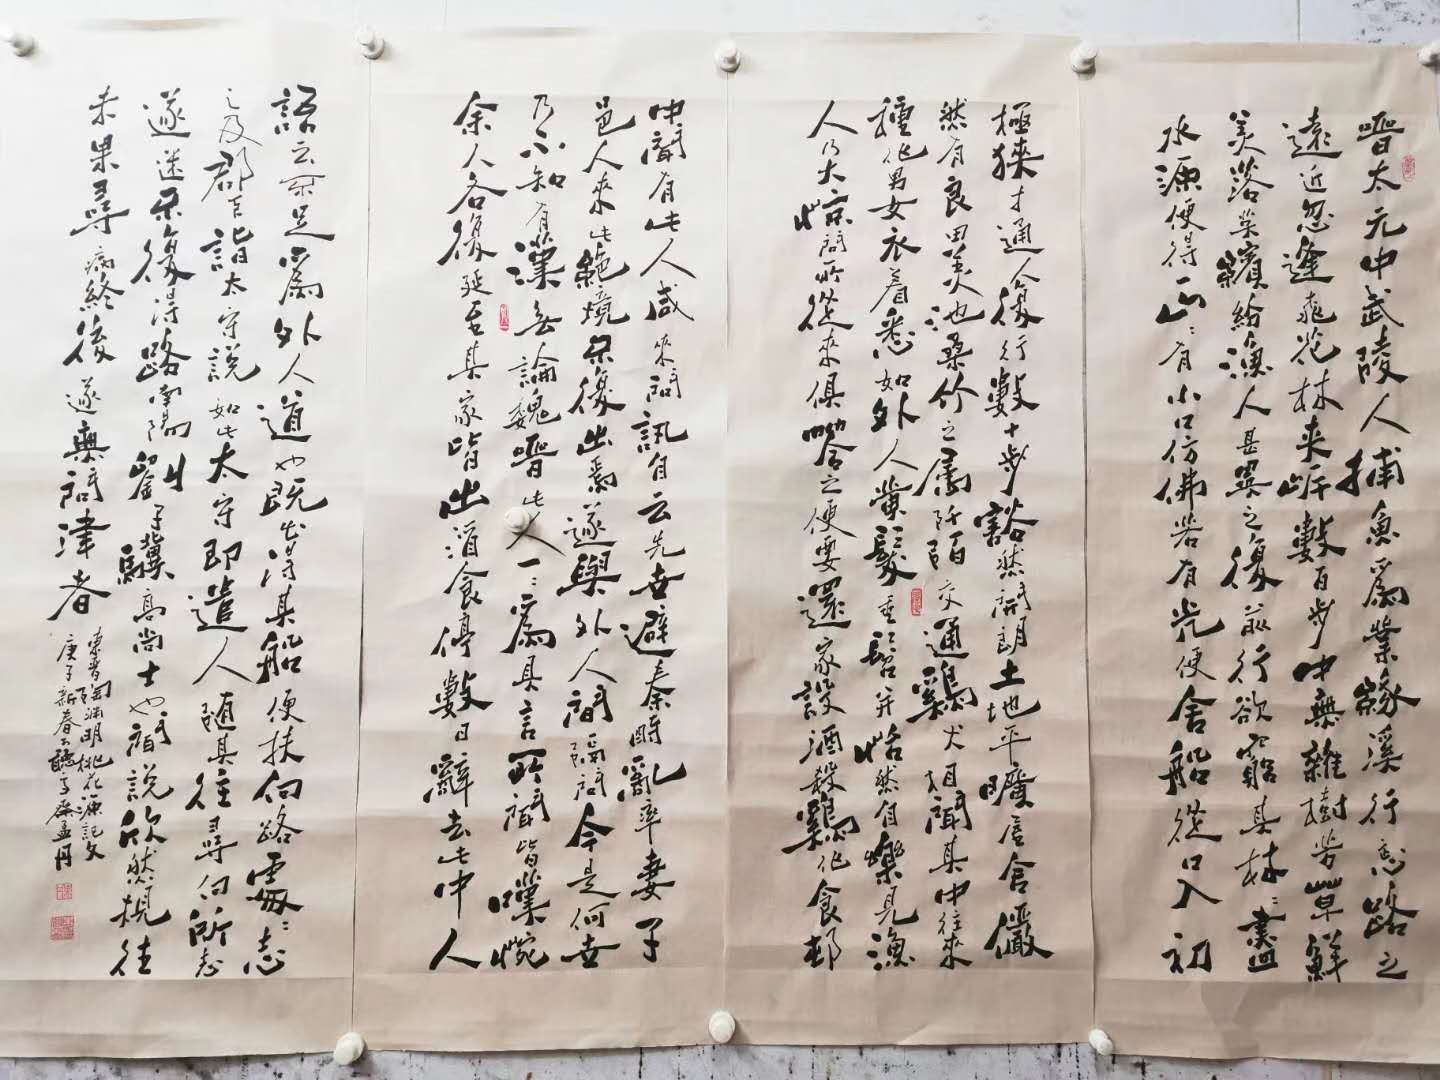 晉太元中武陵人捕魚爲業緣溪行忘路之
遠近忽逢桃花林夾岸數百步中無雜樹芳草鮮
美落英繽紛漁人甚異之復前行欲窮其林〻盡
水源便得一山〻有小口仿佛若有光便舍船從口入初
極狹才通人復行數十步豁然開朗土地平曠屋舍儼
然有良田美池桑竹之屬阡陌交通鷄犬相聞其中往來
種作男女衣着悉如外人黃髮垂髫并怡然自樂見漁
人乃大驚問所從來俱答之便要還家設酒殺鷄作食邨
中聞有此人咸來問訊自云先世避秦時亂率妻子
邑人來此絕境不復出焉遂與外人間隔問今是何世
乃不知有漢無論魏晉此人一〻爲具言所聞皆嘆惋
余人各復延至其家皆出酒食停數日辭去此中人
語云不足爲外人道也既出得其船便扶向路處〻志
之及郡下詣太守說如此太守即遣人隨其往尋向所志
遂迷不復得路南陽劉子驥高尚士也聞說欣然規往
未果尋病終後遂無問津者
東晉陶淵明桃花源記文
庚子新春